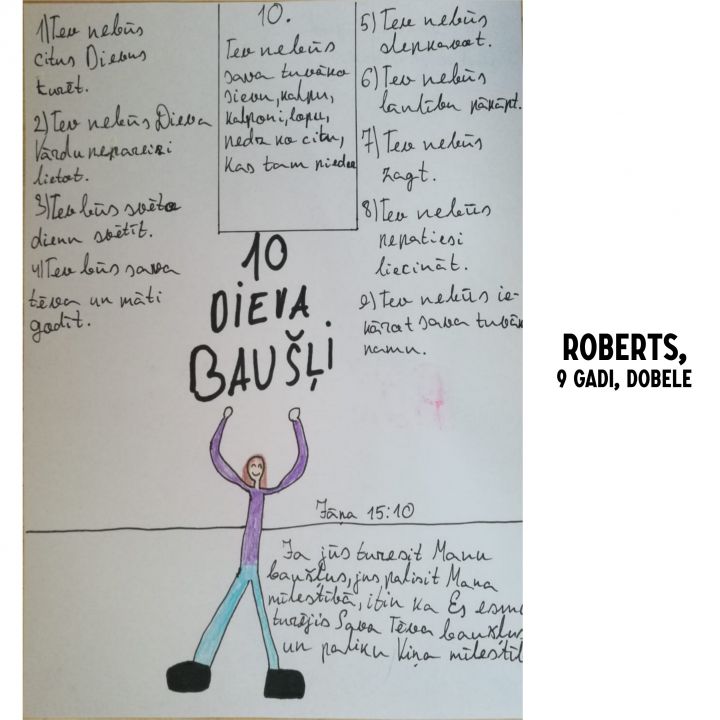 1) Tev nebūs
citus Dievus
turēt.
2) Tev nebūs Dieva
Vārdu nepareizi
lietot.
3) Tev būs svēto
dienu svētīt.
4) Tev būs sava
tēva un māti
godīt.
10.
Tev nebūs
sava tuvāko
sievu, kalpu,
kalponi, lopu,
nedz ko citu,
kas tam pieder
5) Tev nebūs
slepkavot.
6) Tev nebūs
laulību pārkāpt.
7) Tev nebūs
zagt.
8) Tev nebūs
nepatiesi
liecināt.
9) Tev nebūs ie-
kārot sava tuvāk
namu.
10
DIEVA
BAUŠĻI
Jāņa 15:10
Ja jūs turesit Manu
baušļus, jus, palisit Mana
mīlestībā, itin ka Es esmu
turējis Sava Tēva baušļus
un paliku Viņa mīlestīb
ROBERTS,
9 GADI, DOBELE